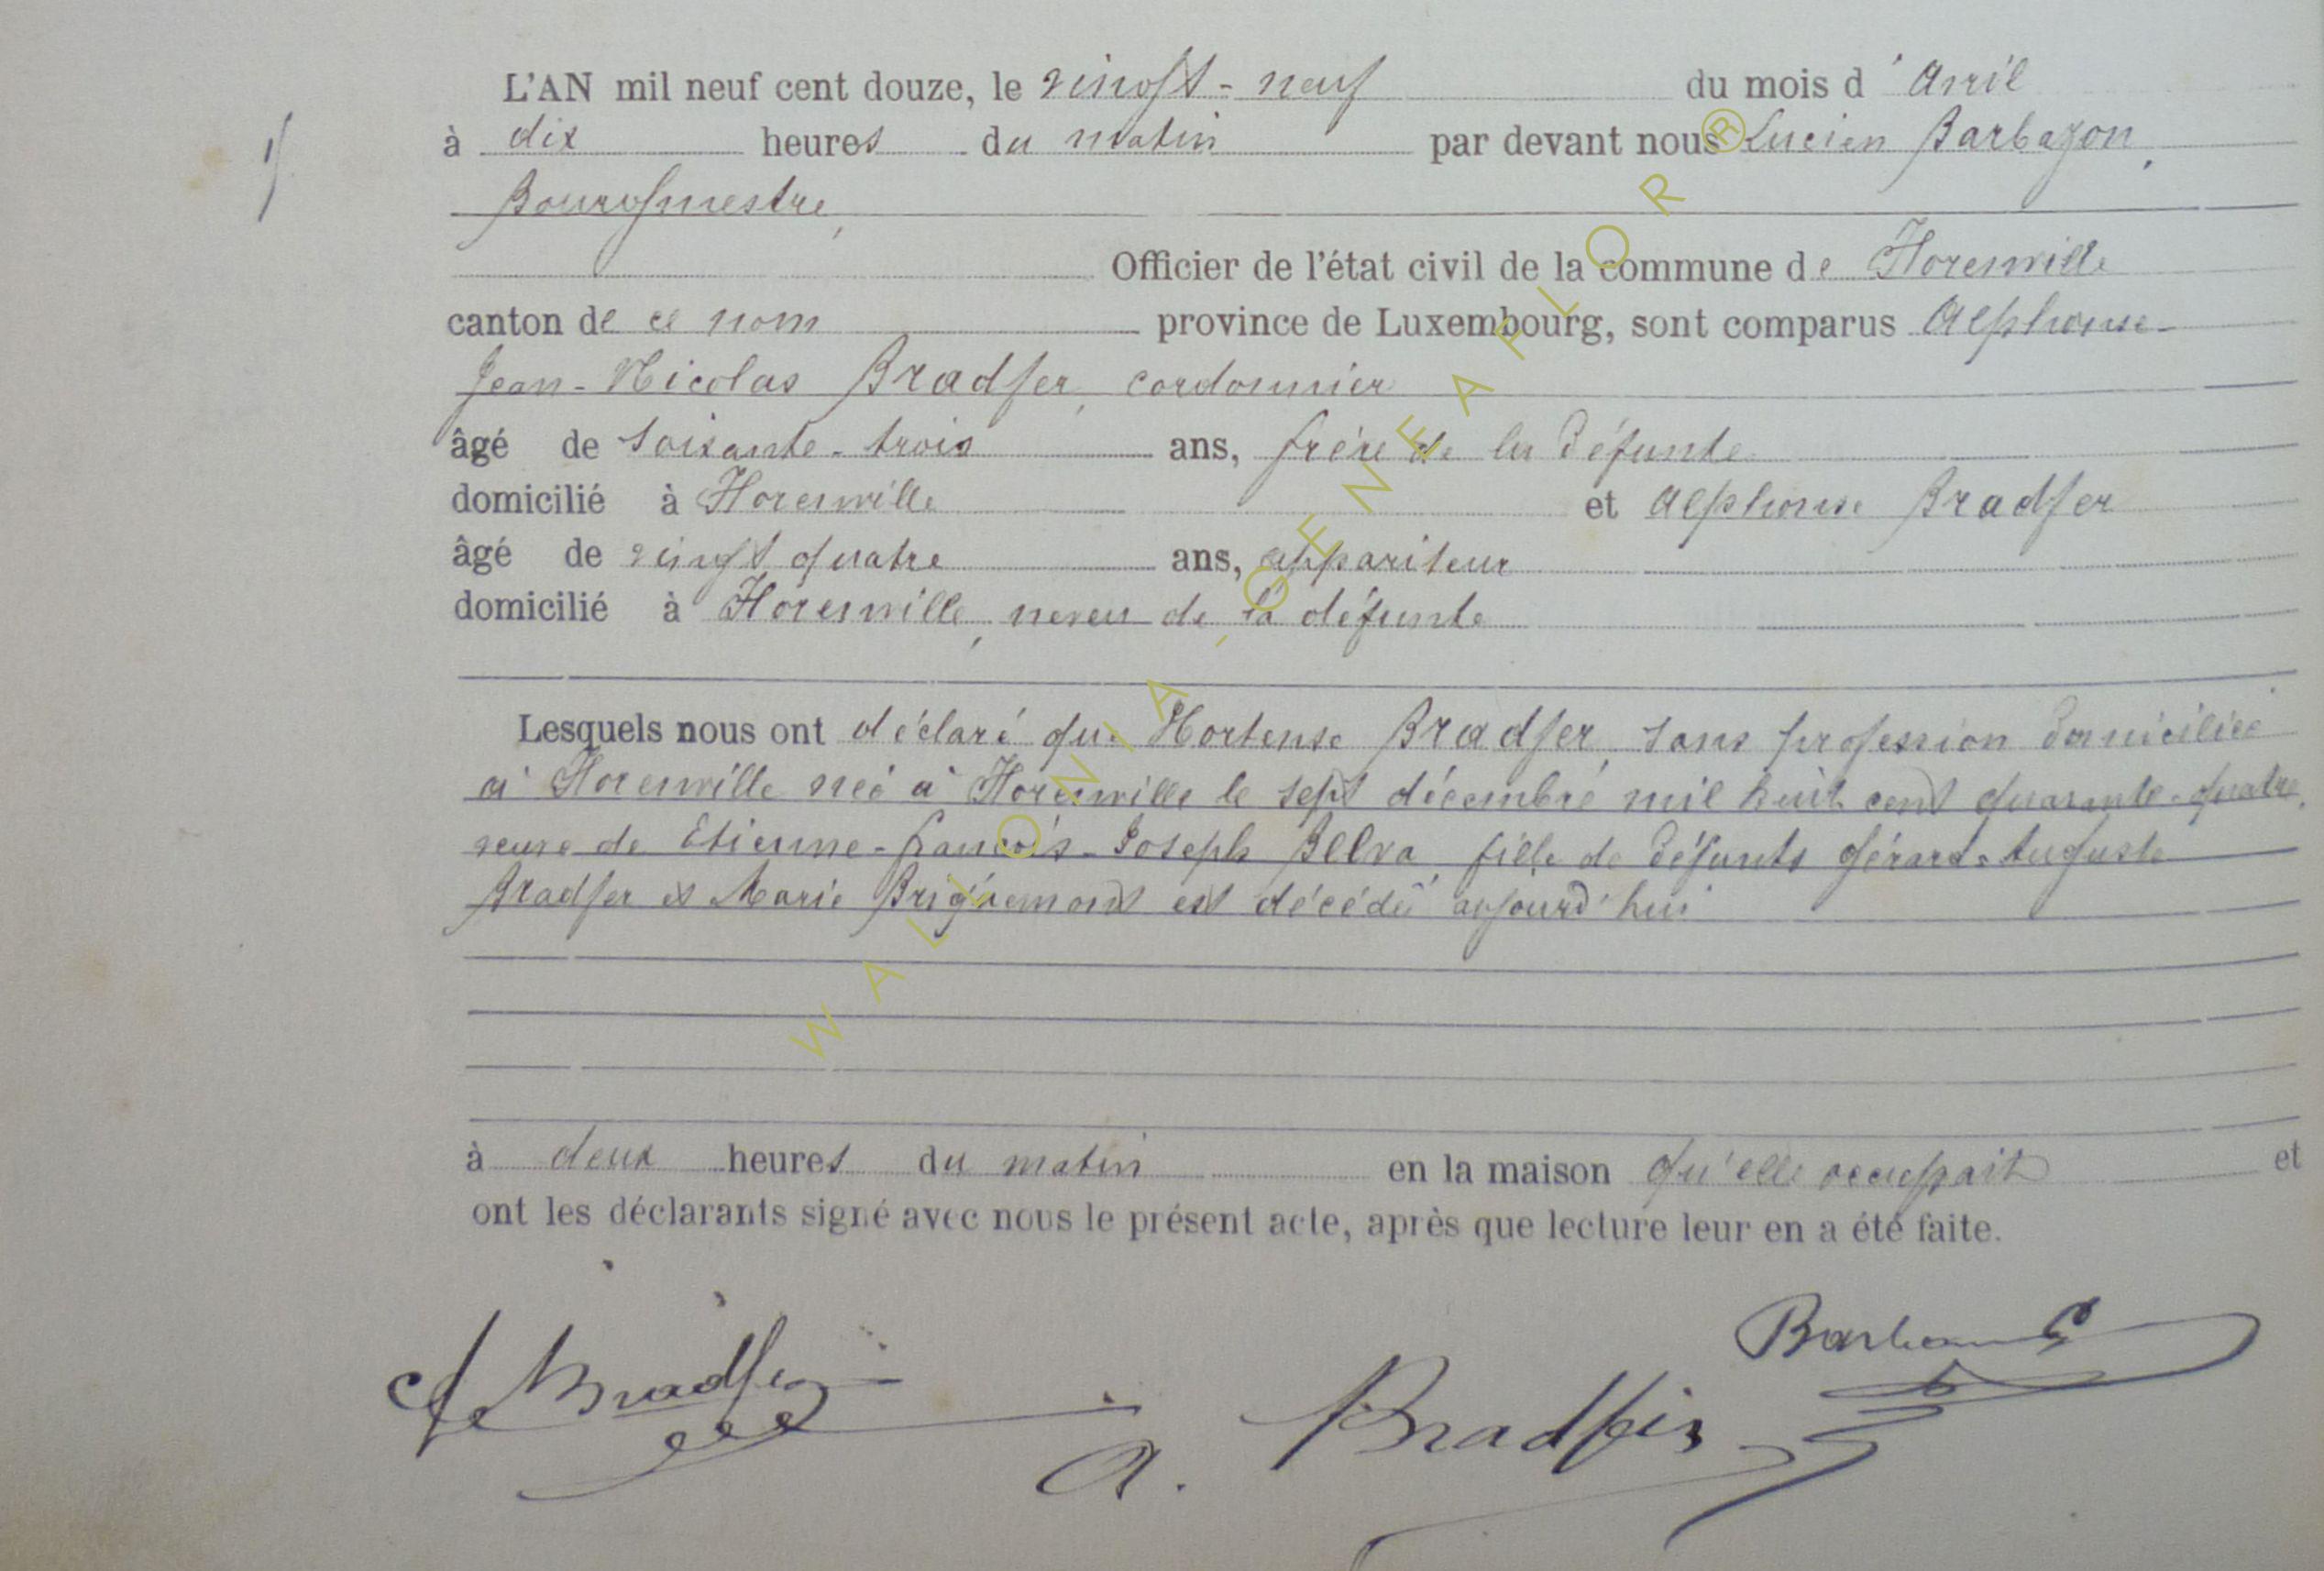 L'AN mil neuf cent douze, le vingt-neuf du mois d'Avril
à dix heures du matin par devant nous Lucien Barbazon,
Bourgmestre,
Officier de l'état civil de la commune de Florenville
canton de ce nom province de Luxembourg, sont comparus Alphonse-
Jean-Nicolas Bradfer, cordonnier
âgé de soixante-trois ans, frère de la défunte
domicilié à Florenville et Alphonse Bradfer
âgé de vingt quatre ans, appariteur
domicilié à Florenville, neveu de la défunte
Lesquels nous ont déclaré que Hortense Bradfer, sans profession domiciliée
à Florenville née à Florenville le sept décembre mil huit cent quarante-quatre,
veuve de Etienne-François-Joseph Belva, fille de défunts Gérard-Auguste
Bradfer et Marie Briquemont est décédée aujourd'hui
à deux heures du matin en la maison qu'elle occupait et
ont les déclarants signé avec nous le présent acte, après que lecture leur en a été faite.
Bradfer
A. Bradfer
WALLONIA, GENEAFLOR®